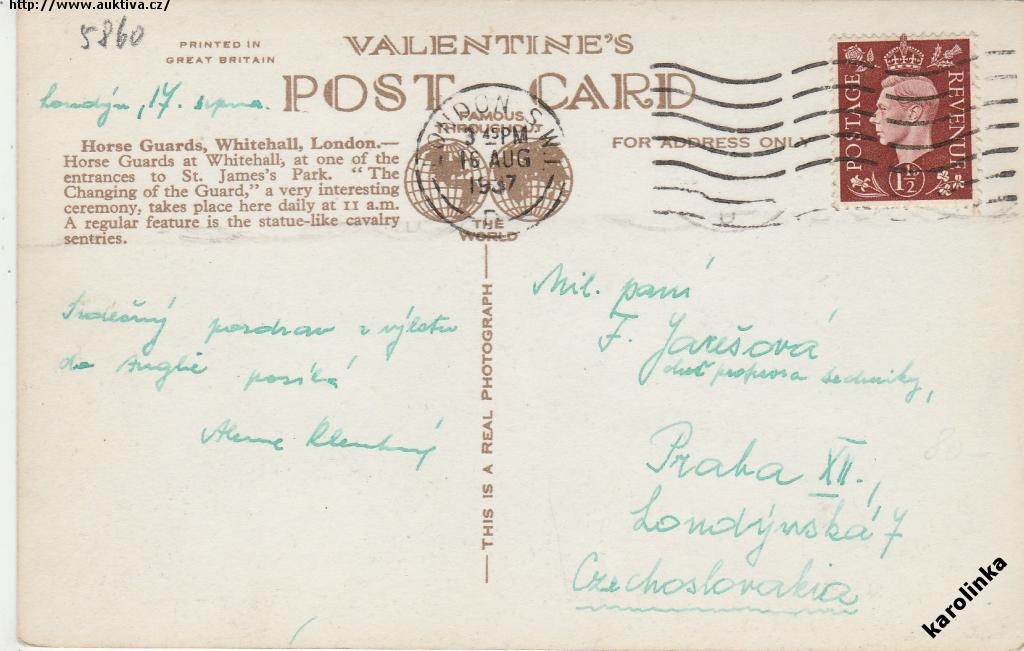 http://www.auktiva.cz/
5860
PRINTED IN
GREAT BRITAIN
VALENTINE'S
POST CARD
FAMOUS
THROUGHOUT
THE
WORLD
FOR ADDRESS ONLY
LONDON. S.W.1
3 45 PM
16 AUG
1937
POSTAGE
REVENUE
1½ D
Londýn, 17. srpna.
Horse Guards, Whitehall, London.—
Horse Guards at Whitehall, at one of the
entrances to St. James's Park. "The
Changing of the Guard," a very interesting
ceremony, takes place here daily at 11 a.m.
A regular feature is the statue-like cavalry
sentries.
Srdečný pozdrav z výletu
do Anglie posílá
THIS IS A REAL PHOTOGRAPH
Mil. paní
F. Jarešová
techniky,
Praha XII.,
Londýnská 7
Czechoslovakia
karolinka